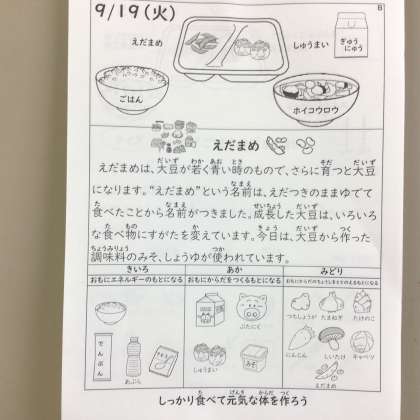 9/19(火)
6
えだまめ
しゅうまい
ぎゅうにゅう
ごはん
ホイコウロウ
えだまめ
えだまめは、大豆が若く青い時のもので、さらに育つと大豆
になります。“えだまめ”という名前は、えだつきのままゆでて
食べたことから名前がつきました。成長した大豆は、いろいろ
な食べ物にすがたを変えています。今日は、大豆から作った
調味料のみそ、しょうゆが使われています。
きいろ
おもにエネルギーのもとになる
あか
おもにからだをつくるもとになる
みどり
おもにからだのちょうしをととのえるもとになる
でんぷん
あぶら
ぶたにく
しゅうまい
みそ
つちしょうが
たまねぎ
たけのこ
にんじん
しいたけ
キャベツ
えだまめ
しっかり食べて元気な体を作ろう